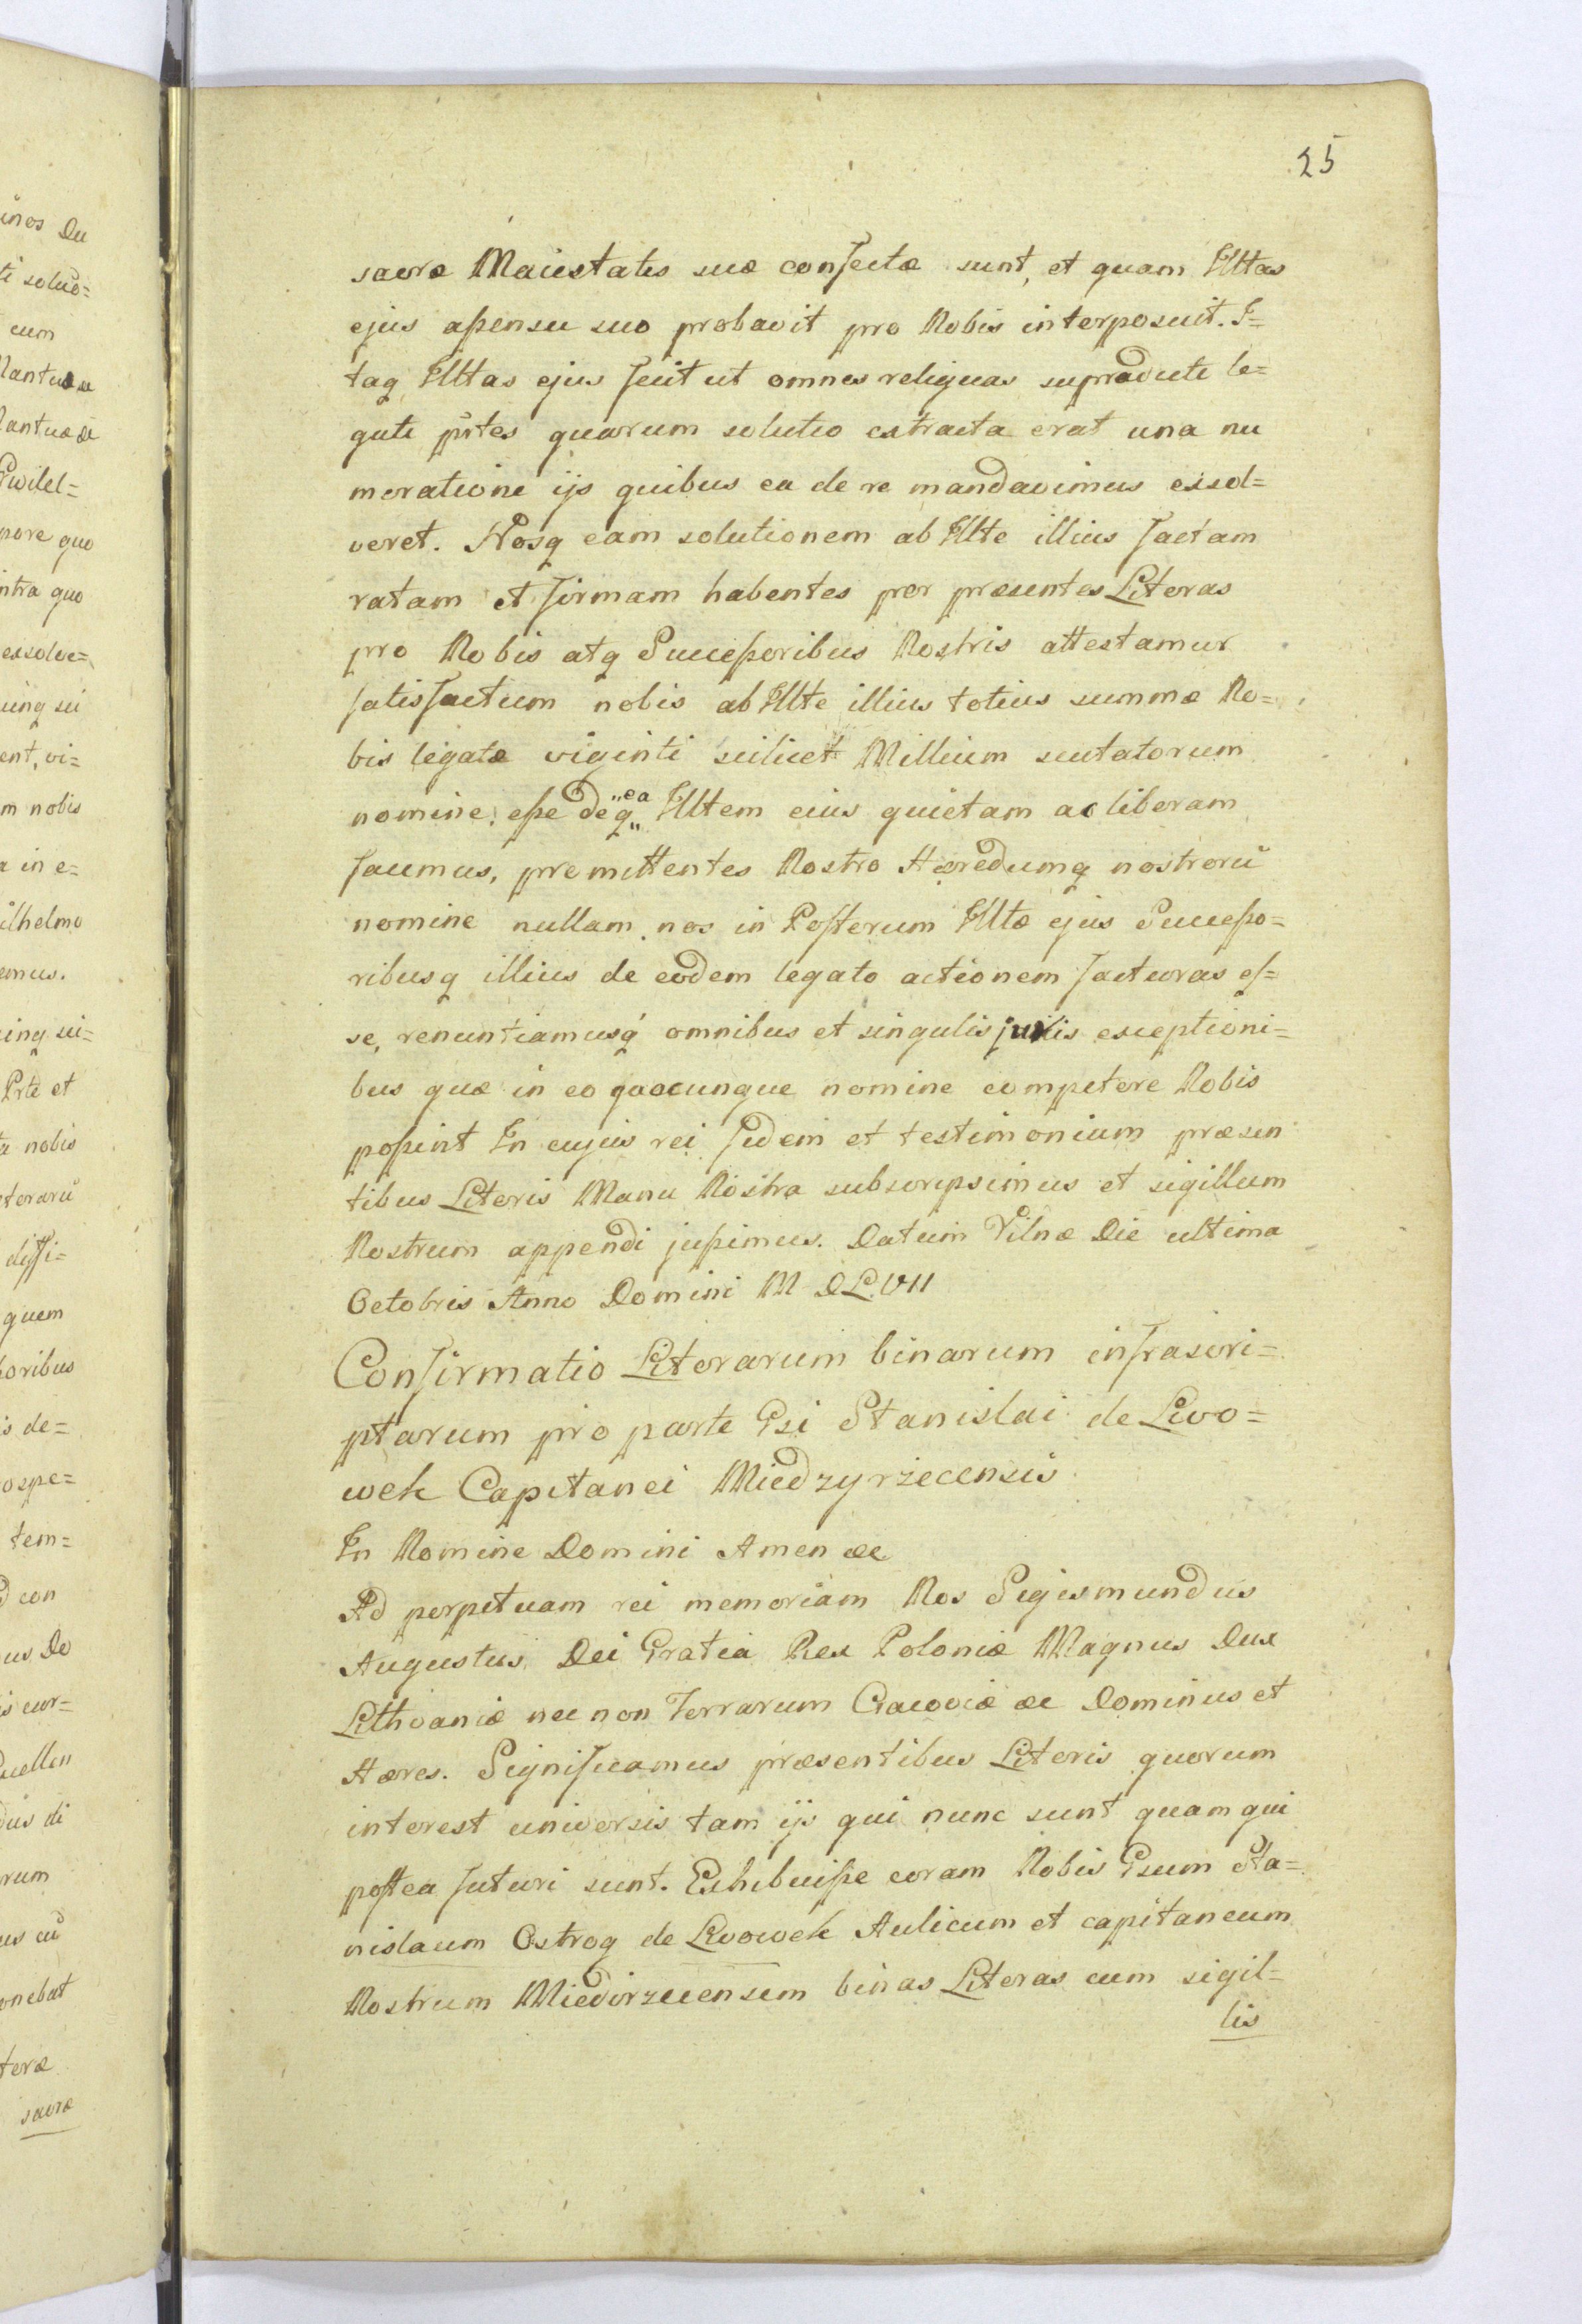 25
sacræ Maiestatis suæ confectæ sunt, et quam Illtas
ejus aßensu suo probavit pro Nobis interposuit. I=
taq Illtas ejus fecit ut omnes reliquas supradicti le=
gati pñtes quarum solutio extracta erat una nu
meratione ijs quibus ea de re mandavimus exsol=
veret. Nosq eam solutionem ab Illte illius factam
ratam et firmam habentes per præsentes Literas
pro Nobis atq Succeßoribus Nostris attestamur
satisfactum nobis ab Illte illius totius summæ No=
bis legatæ viginti scilicet Millium scutatorum
nomine, eße deq „ea Illtem eius quietam ac liberam
facimus, promittentes Nostro Hæredumq nostrorū
nomine nullam nos in Posterum Illtæ ejus Succeßo=
ribusq illius de eodem legato actionem facturas es=
se, renuntiamusq omnibus et singulis juris exceptioni=
bus quæ in eo quocunque nomine competere Nobis
poßint In cujus rei fidem et testimonium præsen
tibus Literis Manu Nostra subscripsimus et sigillum
Nostrum appendi jußimus. Datum Vilnæ Die ultima
Octobris Anno Domini M DL.VII
Confirmatio Literarum binarum infrascri=
ptarum pro parte Gsi Stanislai de Lwo=
wek Capitanei Miedzyrzecensis
In Nomine Domini Amen &c
Ad perpetuam rei memoriam Nos Sigismundus
Augustus Dei Gratia Rex Poloniæ Magnus Dux
Lithvaniæ nec non Terrarum Cracoviæ &c Dominus et
Hæres. Significamus præsentibus Literis quorum
interest universis tam ijs qui nunc sunt quam qui
postea futuri sunt. Exhibuiße coram Nobis Gsum Sta=
nislaum Ostrog de Lwowek Aulicum et capitaneum
Nostrum Miedirzecensem binas Literas cum sigil=
lis